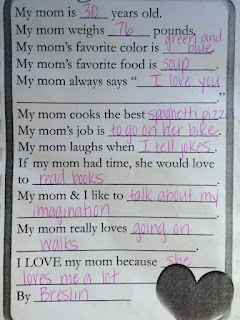 My mom is 30 years old.
My mom weighs 76 pounds.
My mom's favorite color is green and blue.
My mom's favorite food is soup.
My mom always says "I love you
."
My mom cooks the best spaghetti pizza
My mom's job is to go on her bike.
My mom laughs when I tell jokes.
If my mom had time, she would love
to read books.
My mom & I like to talk about my
imagination.
My mom really loves going on
walks.
I LOVE my mom because she
loves me a lot
By Breslin